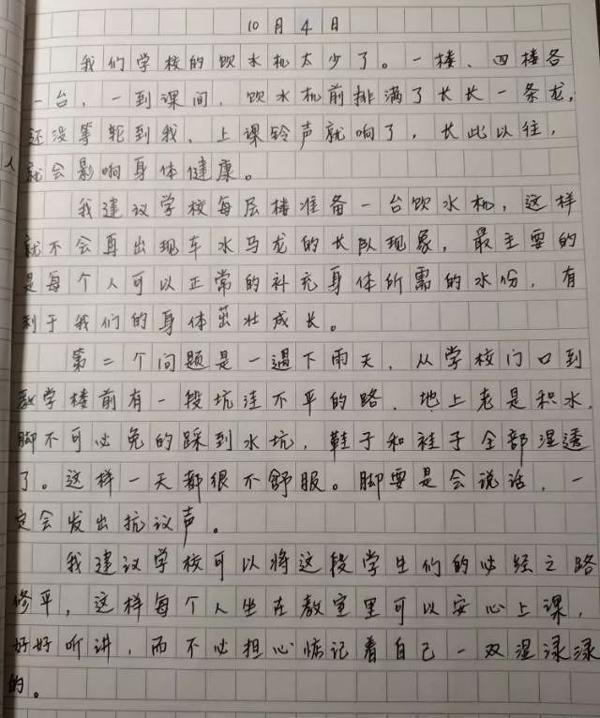 10月4日
我们学校的饮水机太少了。一楼、四楼各
一台，一到课间，饮水机前排满了长长一条龙，
还没等轮到我、上课铃声就响了，长此以往，
就会影响身体健康。
我建议学校每层楼准备一台饮水机，这样
就不会再出现车水马龙的长队现象，最主要的
是每个人可以正常的补充身体所需的水份，有
利于我们的身体茁壮成长。
第二个问题是一遇下雨天，从学校门口到
教学楼前有一段坑洼不平的路，地上老是积水，
脚不可必免的踩到水坑，鞋子和袜子全部湿透
了。这样一天都很不舒服。脚要是会说话，一
定会发出抗议声。
我建议学校可以将这段学生们的必经之路
修平，这样每个人坐在教室里可以安心上课，
好好听讲，而不必担心惦记着自己一双湿漉漉
的。